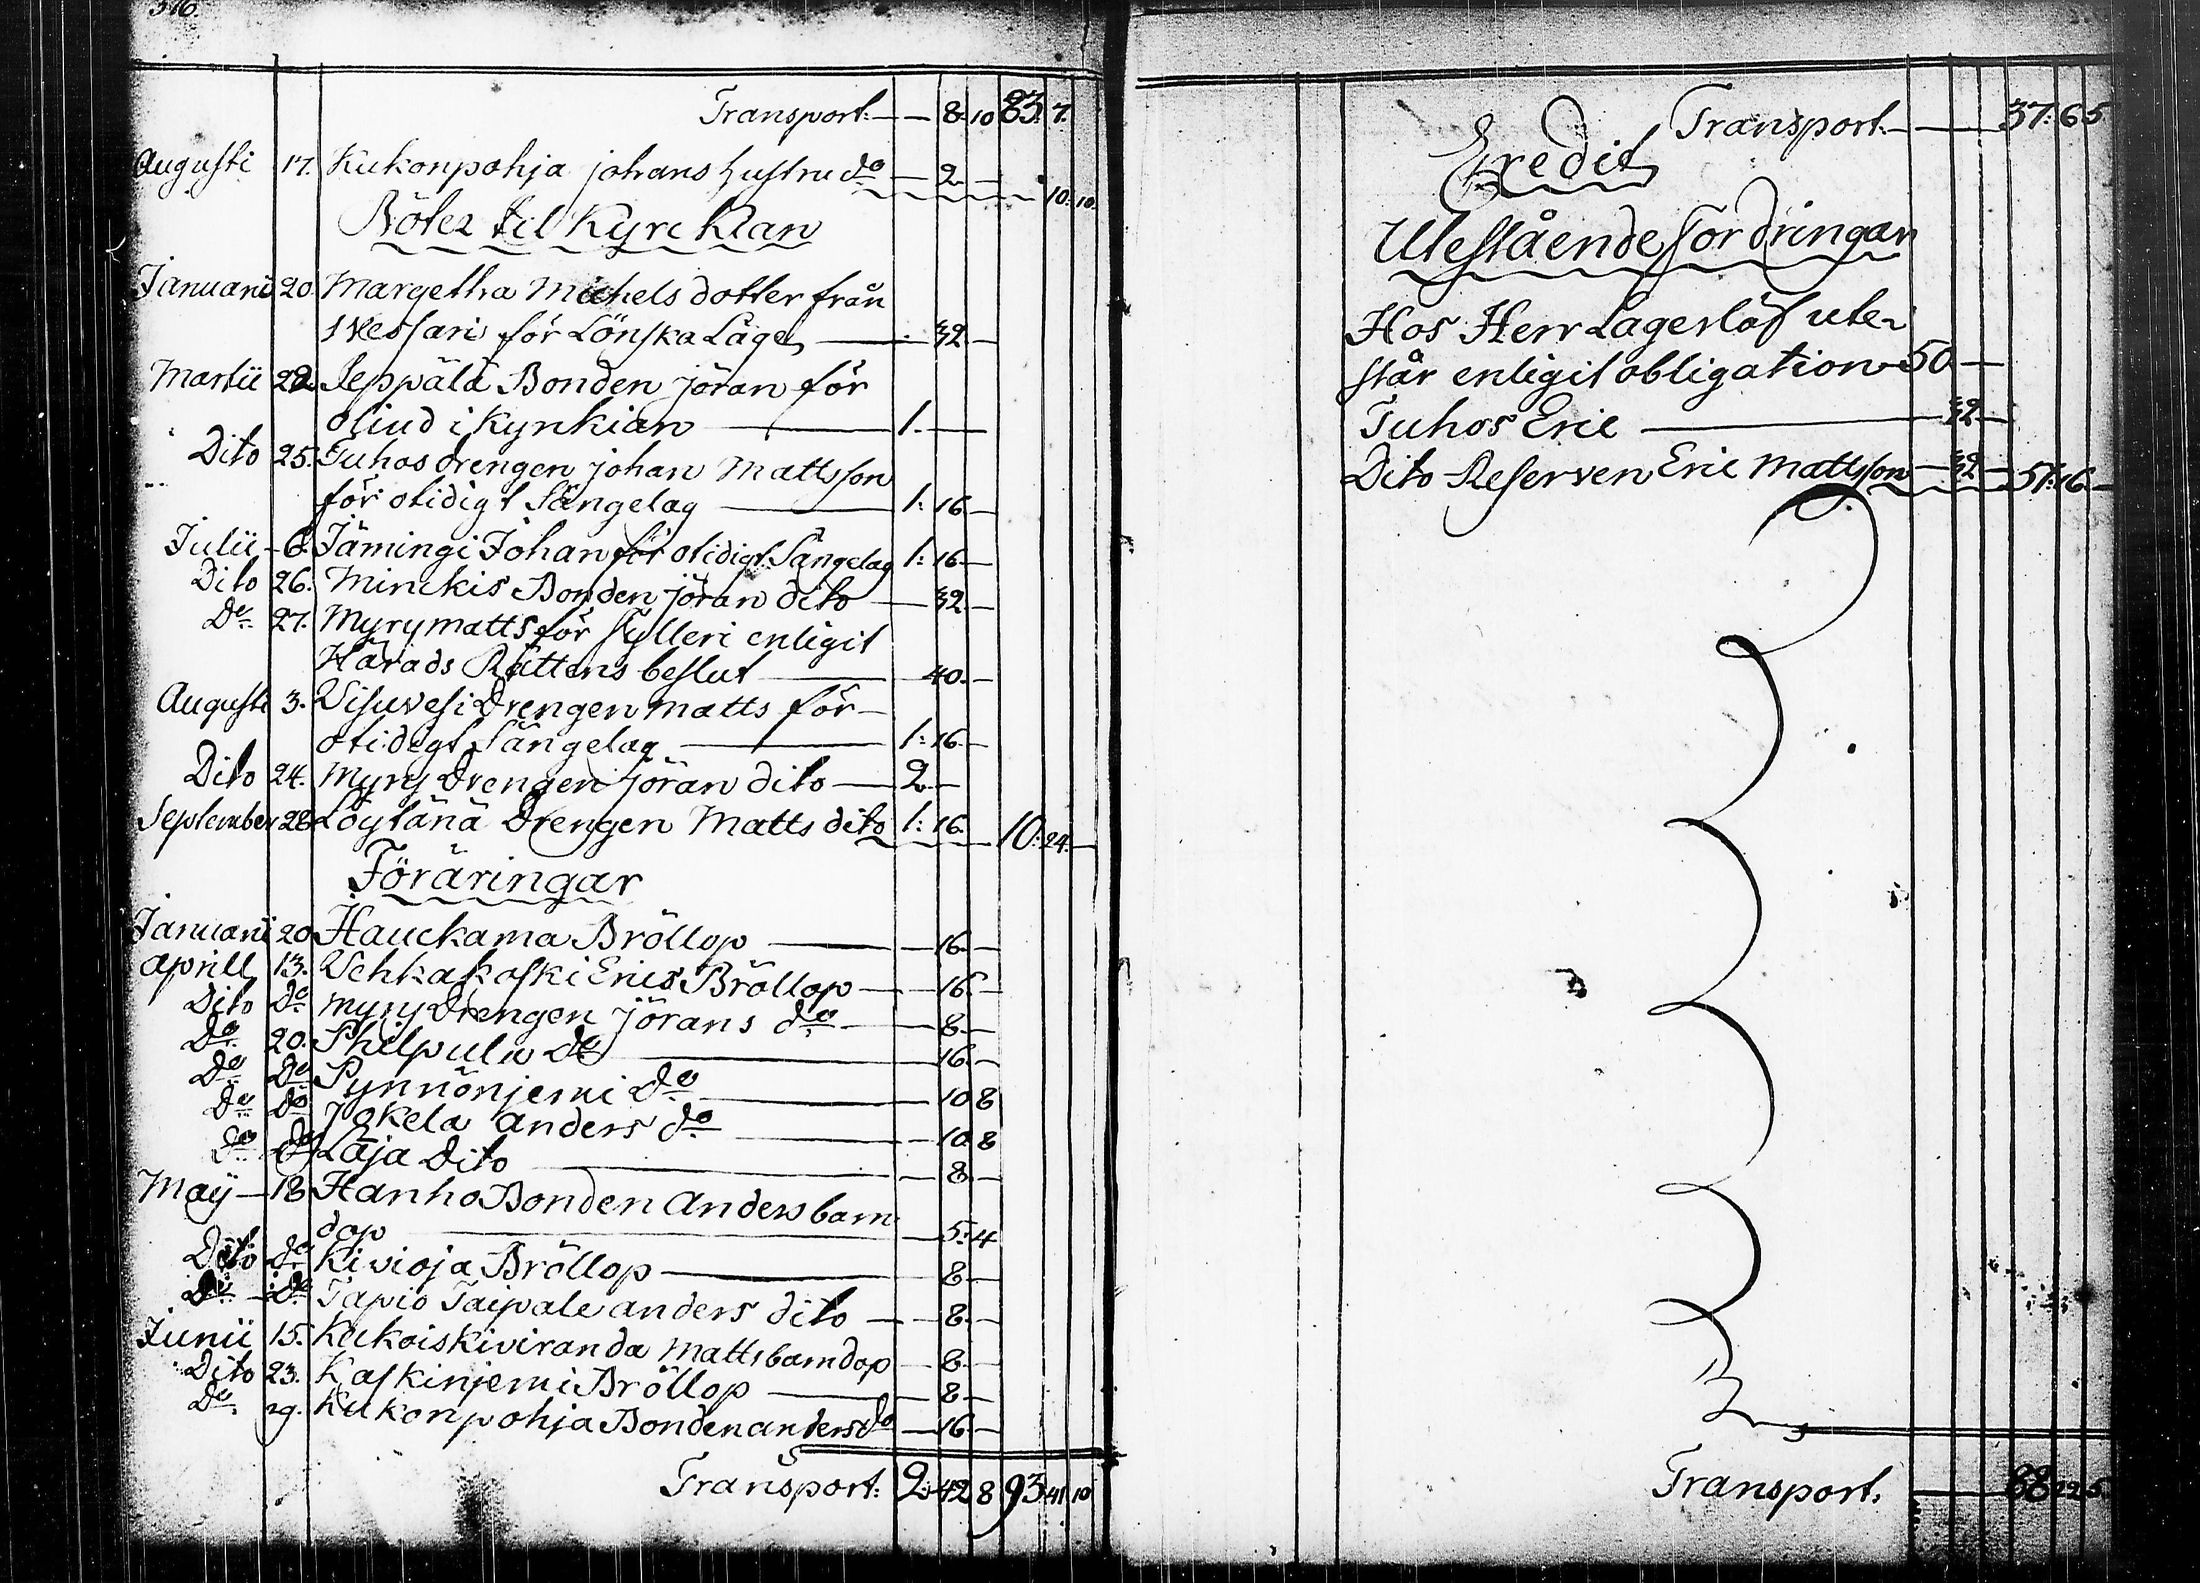 316.
Transport. — — 8. 10 83. 7.
Augusti 17. Kukonpohja johans hustru do — 2 — 10. 10.
Böter til Kyrckian
Januarii 20. Margetha Michels dotter från
för Lönska Läge — 32. —
Martii 22. Seppälä Bonden jöran för
oliud i Kyrkian — 1. —
Dito 25. Tuhos drengen johan Mattsson
för otidigt Sängelag — 1: 16. —
Julii — 6. Jämingi Johan för otidigt Sängelag 1: 16. —
Dito 26. Minckis Bonden jöran dito — 32. —
Do 27. Myry matts för fylleri enligit
Härads Rättens beslut — 40. —
Augusti 3. Visuvesi Drengen matts för —
otidigt Sängelag — 1: 16. —
Dito 24. Myry Drengen jöran dito — 2. —
September 28. Löytänä Drengen Matts dito 1: 16. — 10: 24. —
Föräringar
Januarii 20. Hauckama Bröllop — 16. —
Aprill 13. Vehkakoski Erics Bröllop — 16. —
Dito do Myry Drengen jörans do — 8 —
Do 20. Philpula do — 16. —
Do Do Pynnönjemi do — 10 8
Do do Jokela anders do — 10. 8
Do do Laja Dito — 8. —
Maij — 18. Hanho Bonden Anders barn
dop — 5: 4
Dito do Kivioja Bröllop — 8 —
Do do Tapio Taipale anders dito — 8. —
Junii 15. Kukoiskiviranda Matts barndop — 8. —
Dito 23. Kaskinjemi Bröllop — 8 —
Do 29. Kukonpohja Bonden anders do — 16. —
Transport: 2: 42 8 93: 41 10
Transport. — 37: 6 5
Credit
Utestående fordringar
Hos Herr Lagerlöf ute-
står enligit obligation 50 —
Tuhos Eric — 32 —
Dito Reserven Eric Mattsson — 32 — 51: 16. —
Transport. — 88 22 5